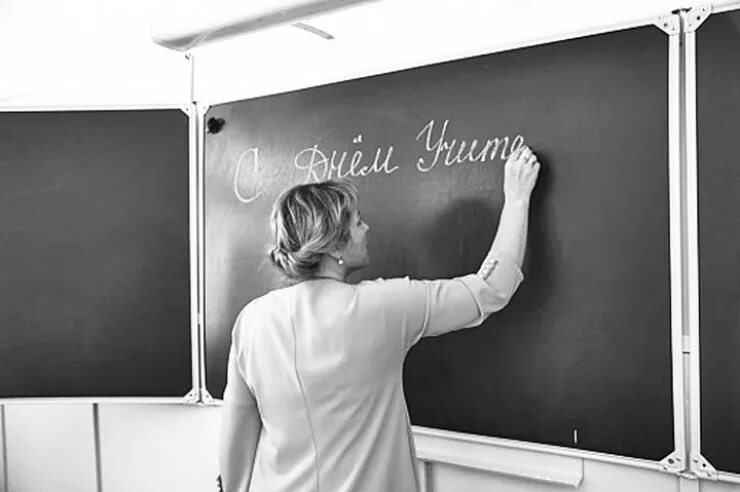 С Днём Учите